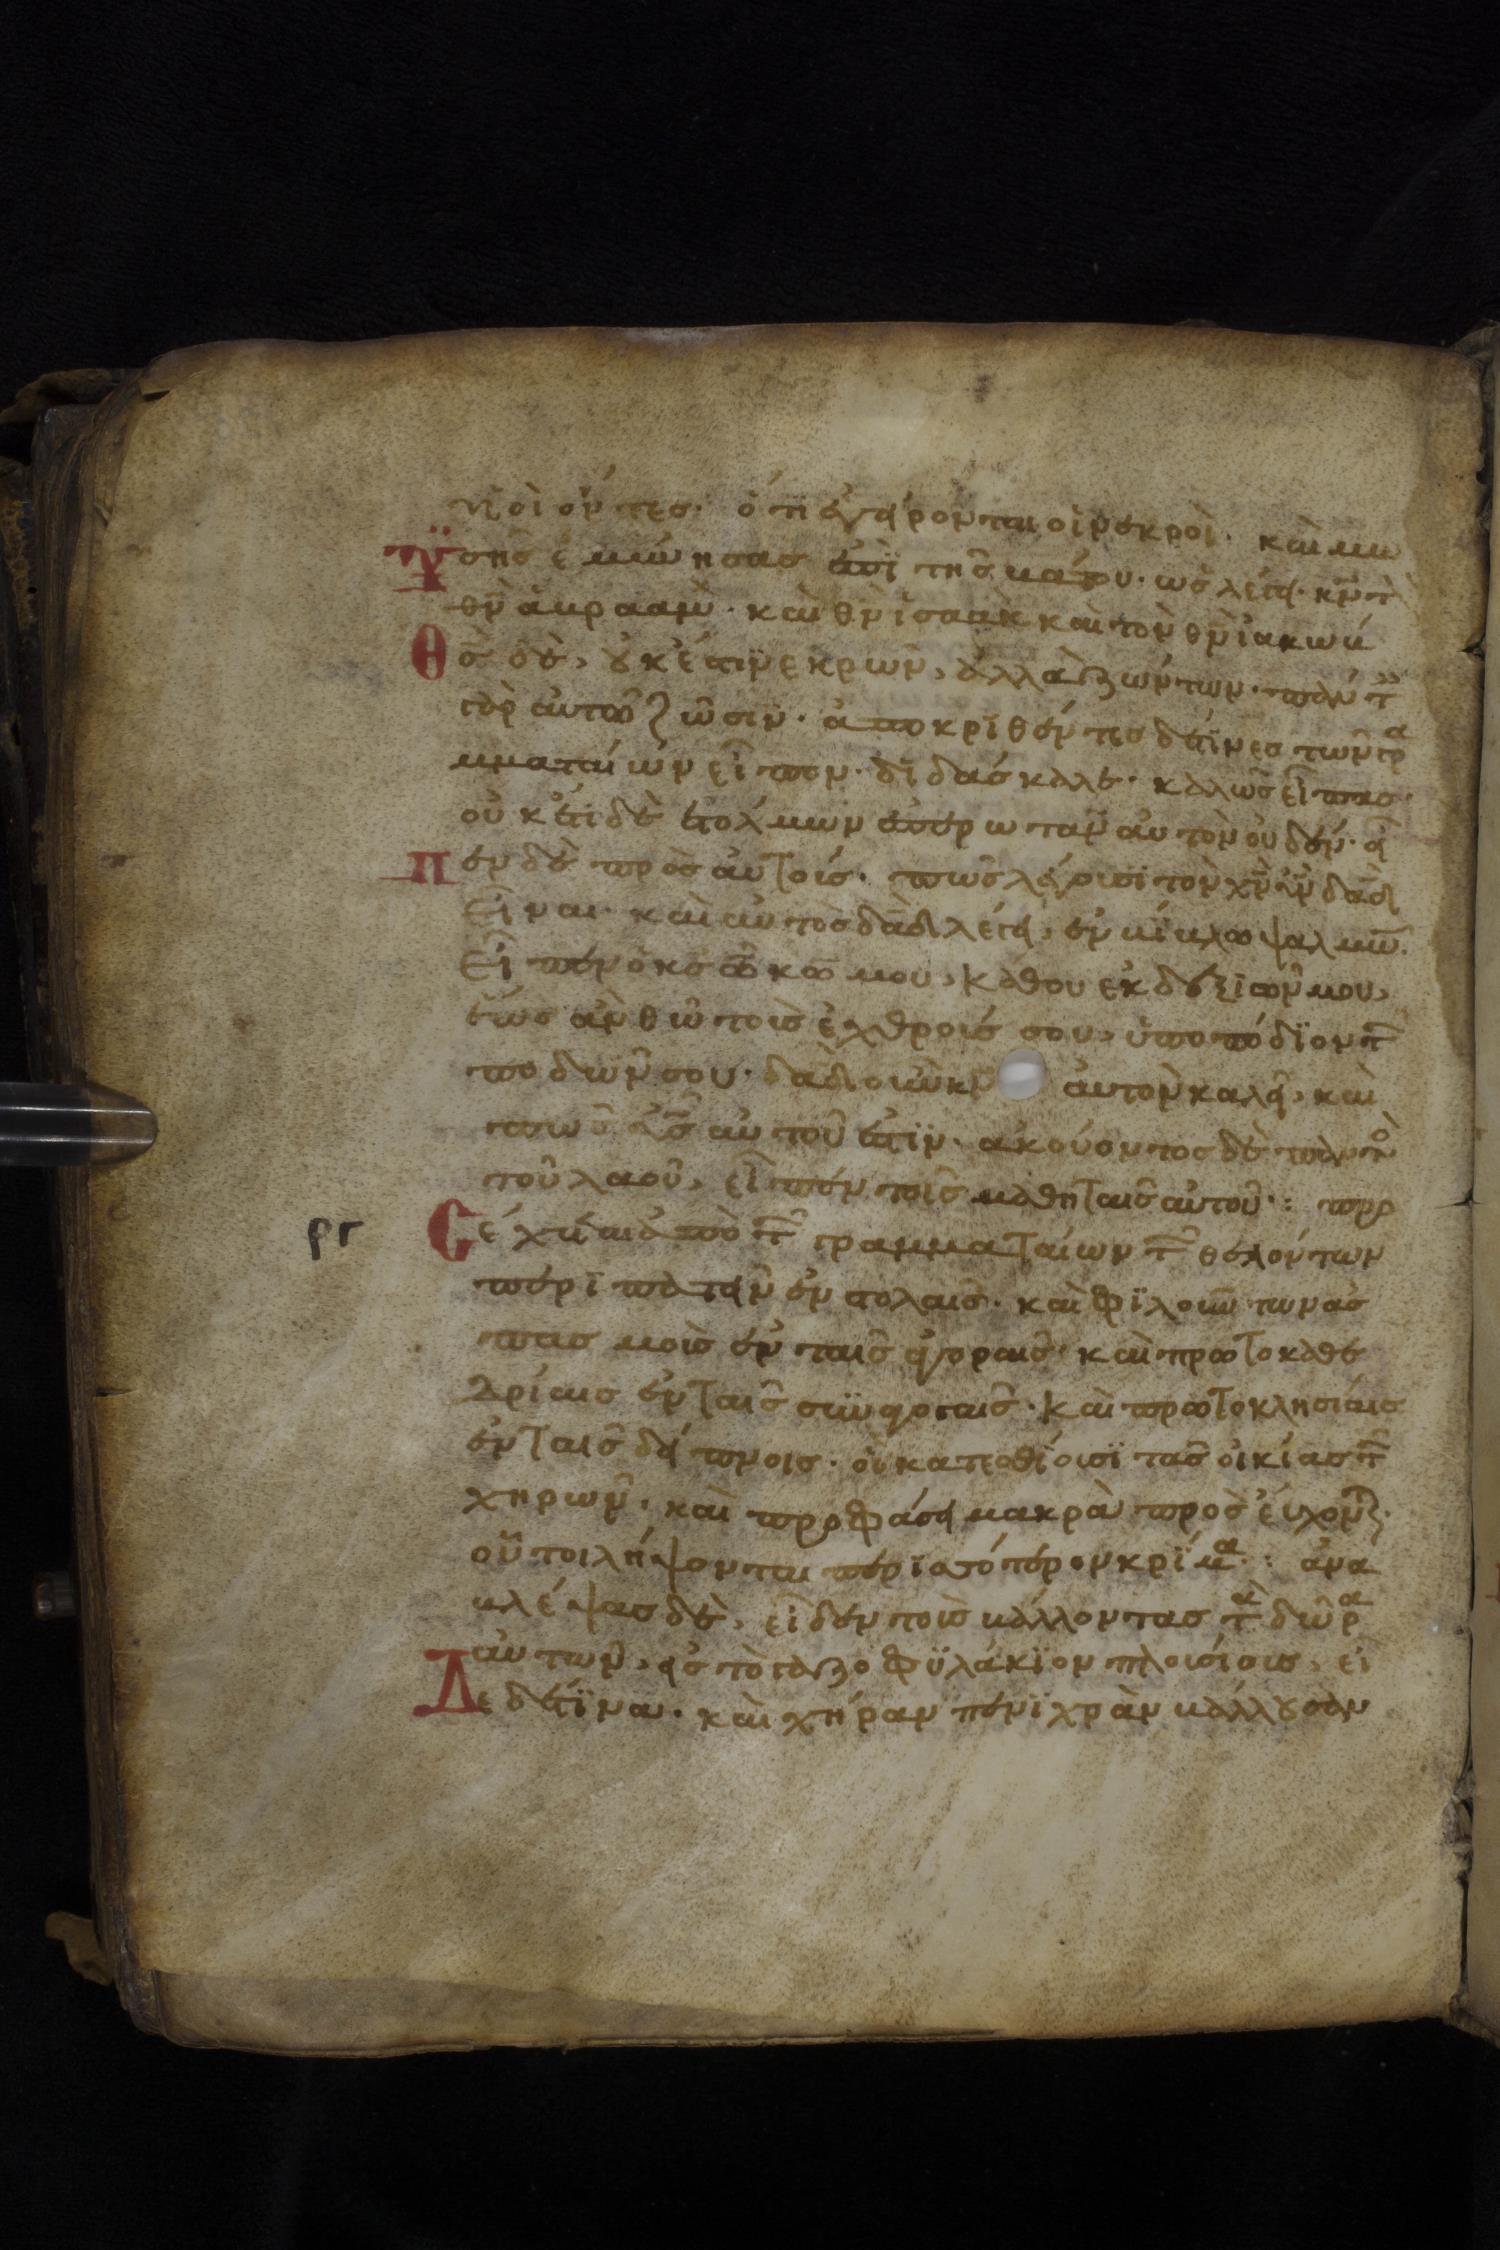 υἱοὶ ὄντες· ὅτι ἐγείρονται οἱ νεκροὶ· καὶ μω
Ϋσῆς ἐμώνησας ἐπῒ τῆς βάτου· ὡς λέγει κν τὸ
θν ἀβραὰμ· καὶ θν ἰσαὰκ καὶ τὸν θν ἰακώβ
Θς δὲ, οὐκ ἔστϊν νεκρῶν, ἀλλὰ ζώντων· πάντες
γὰρ αὐτῶ ζῶσιν· ἀποκριθέντες δέ τϊνες τῶν γρα
μματαίων εἶπον· δϊδάσκαλε· καλῶς εἶπας·
οὐκέτι δὲ ἐτόλμων ἐπερωτᾶν αὐτὸν οὐδέν· εἶ
Πεν δὲ πρὸς αὐτοίς· πῶς λέγουσϊ τὸν χν υν δαδ
εἶναι· καὶ αὐτὸς δαδ λέγει, ἐν βίβλω ψαλμῶν·
εἶπεν ὁ κς τῶ κω μου, κάθου ἐκ δεξϊῶν μου,
ἕως ἂν θῶ τοὺς ἐχθρούς σου, ὑποπόδϊον τῶν
ποδῶν σου· δαδ οὖν κν αὐτὸν καλεῖ, καὶ
πῶς υς αὐτοῦ ἐστϊν· ἀκούοντος δὲ παντὸς
τοῦ λαοῦ, εἶπεν τοῖς μαθηταῖς αὐτοῦ·: προ
ργ Σέχεται ἀπὸ τῶν γραμματαίων τῶν θελόντων
περϊπατεῖν ἐν στολαῖς· καὶ φϊλούντων ἀσ
πασμοὺς ἐν ταῖς ἀγοραῖς· καὶ πρωτοκαθε
δρίαις ἐν ταῖς συϋαγογαῖς· καὶ πρωτοκλησίαις
ἐν ταῖς δείπνοις· οἱ κατεσθίουσϊ τὰς οἰκίας τῶν
χηρῶν· καὶ προφάσει μακρὰ προσεύχονται·
οὗτοι λήψονται περϊσσότερον κρῖμα·: ἀνα
βλέψας δὲ, εἶδεν τοὺς βάλλοντας τὰ δῶρα
αὐτῶν, εἰς τὸ γαζοφϋλάκϊον πλουσίους, εἶ
Δε δέ τϊνα· καὶ χήραν πενϊχρὰν βάλλουσαν